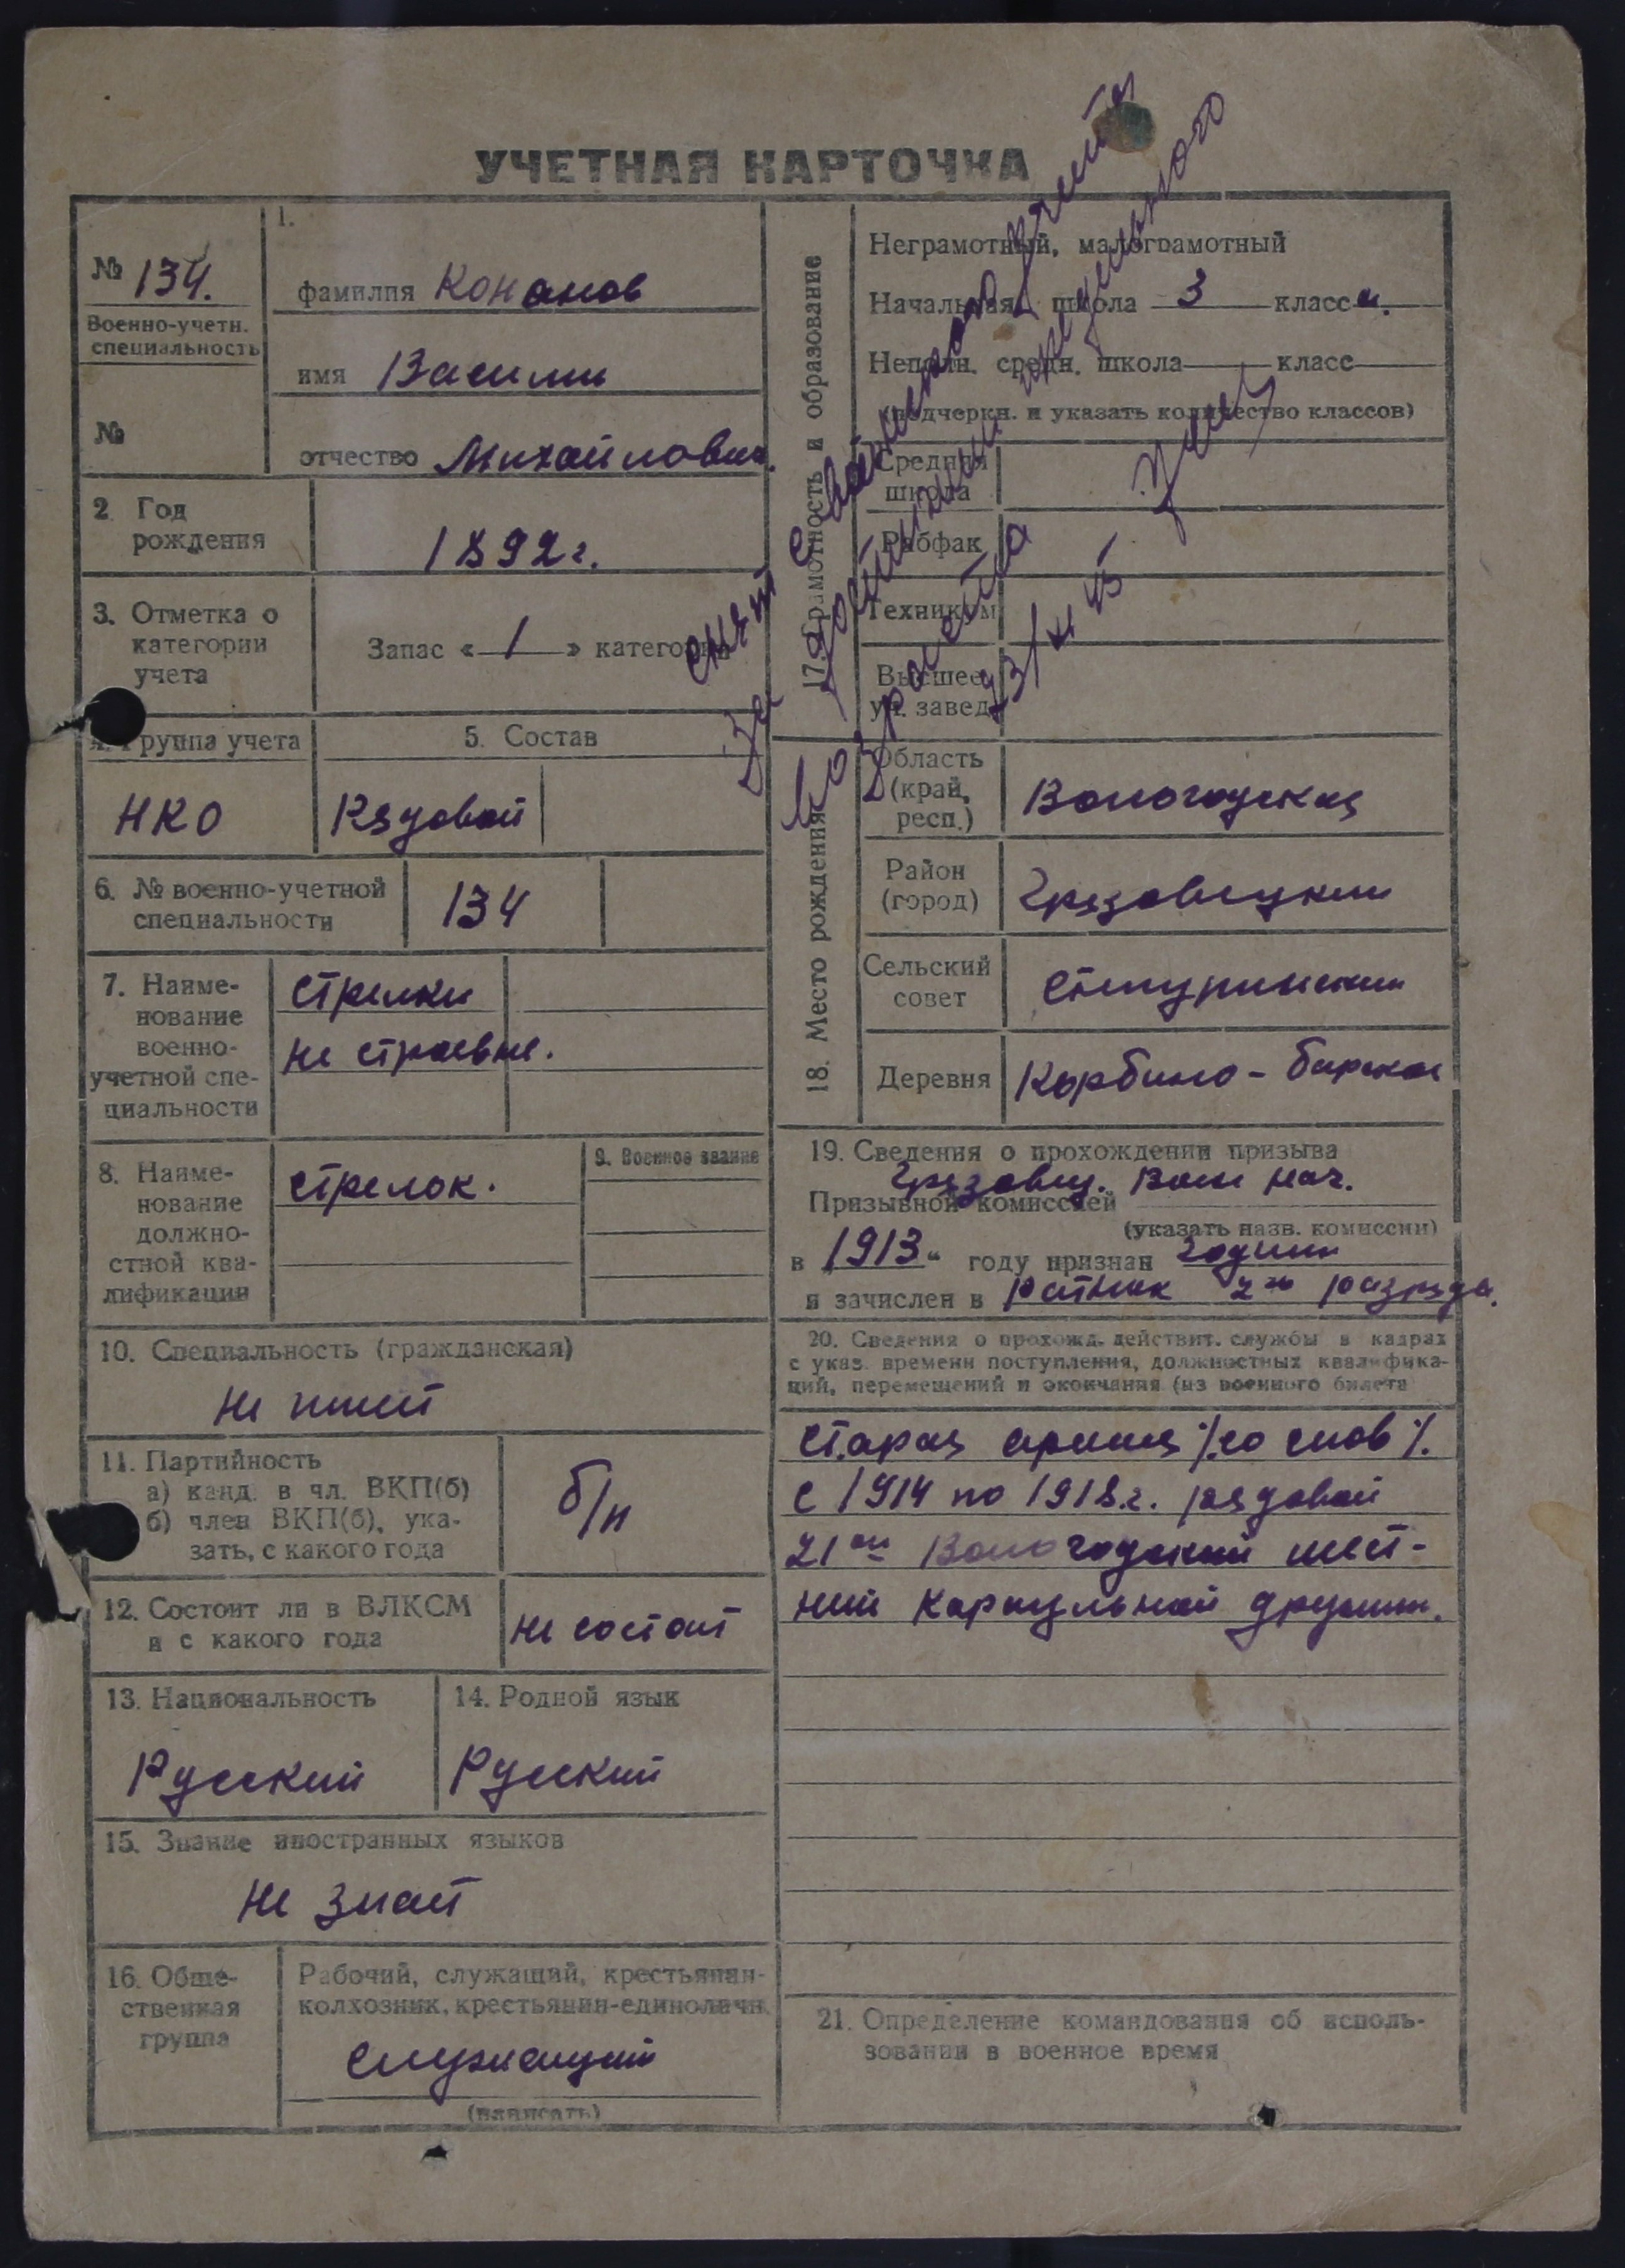 УЧЕТНАЯ КАРТОЧКА
№ 134.
Военно-учетн.
специальность
№
1.
фамилия Конанов
имя Васили
отчество Михайлович.
2 Год
рождения
1892 г.
3. Отметка о
категории
учета
Запас «1» категории
4. Группа учета
5. Состав
НКО
Рядовой
6. № военно-учетной
специальности
134
7. Наиме-
нование
военно-
учетной спе-
циальности
стрелки
не строевые.
8. Наиме-
нование
должно-
стной ква-
лификации
стрелок.
9. Военное звание
10. Специальность (гражданская)
не имеет
11. Партийность
а) канд. в чл. ВКП(б)
б) член ВКП(б), ука-
зать, с какого года
б/п
12. Состоит ли в ВЛКСМ
и с какого года
не состоит
13. Национальность
Русский
14. Родной язык
Русский
15. Знание иностранных языков
не знает
16. Обще-
ственная
группа
Рабочий, служащий, крестьянин-
колхозник, крестьянин-единоличн.
служащий
(вписать)
17. Грамотность и образование
Неграмотный, малограмотный
Начальная школа 3 класса.
Неполн. средн. школа класс
(подчеркн. и указать количество классов)
Средняя
школа
Рабфак
Техникум
Высшее
уч. завед.
снят с воинского учета
За достижении предельного
возраста
23/XI 45
18. Место рождения
Область
(край,
респ.)
Вологодская
Район
(город)
Грязовецкий
Сельский
совет
Деревня
Корбино-барское
19. Сведения о прохождении призыва
Грязовец. Воин нач.
Призывной комиссией
(указать назв. комиссии)
в "1913" году признан годным
и зачислен в ратник 2го разряда.
20. Сведения о прохожд. действит. службы в кадрах
с указ. времени поступления, должностных квалифика-
ций, перемещений и окончания (из военного билета
Старая армия /со слов/.
с 1914 по 1918 г. рядовой
21ой Вологодский пеш-
ий караульной дружин.
21. Определение командования об исполь-
зовании в военное время